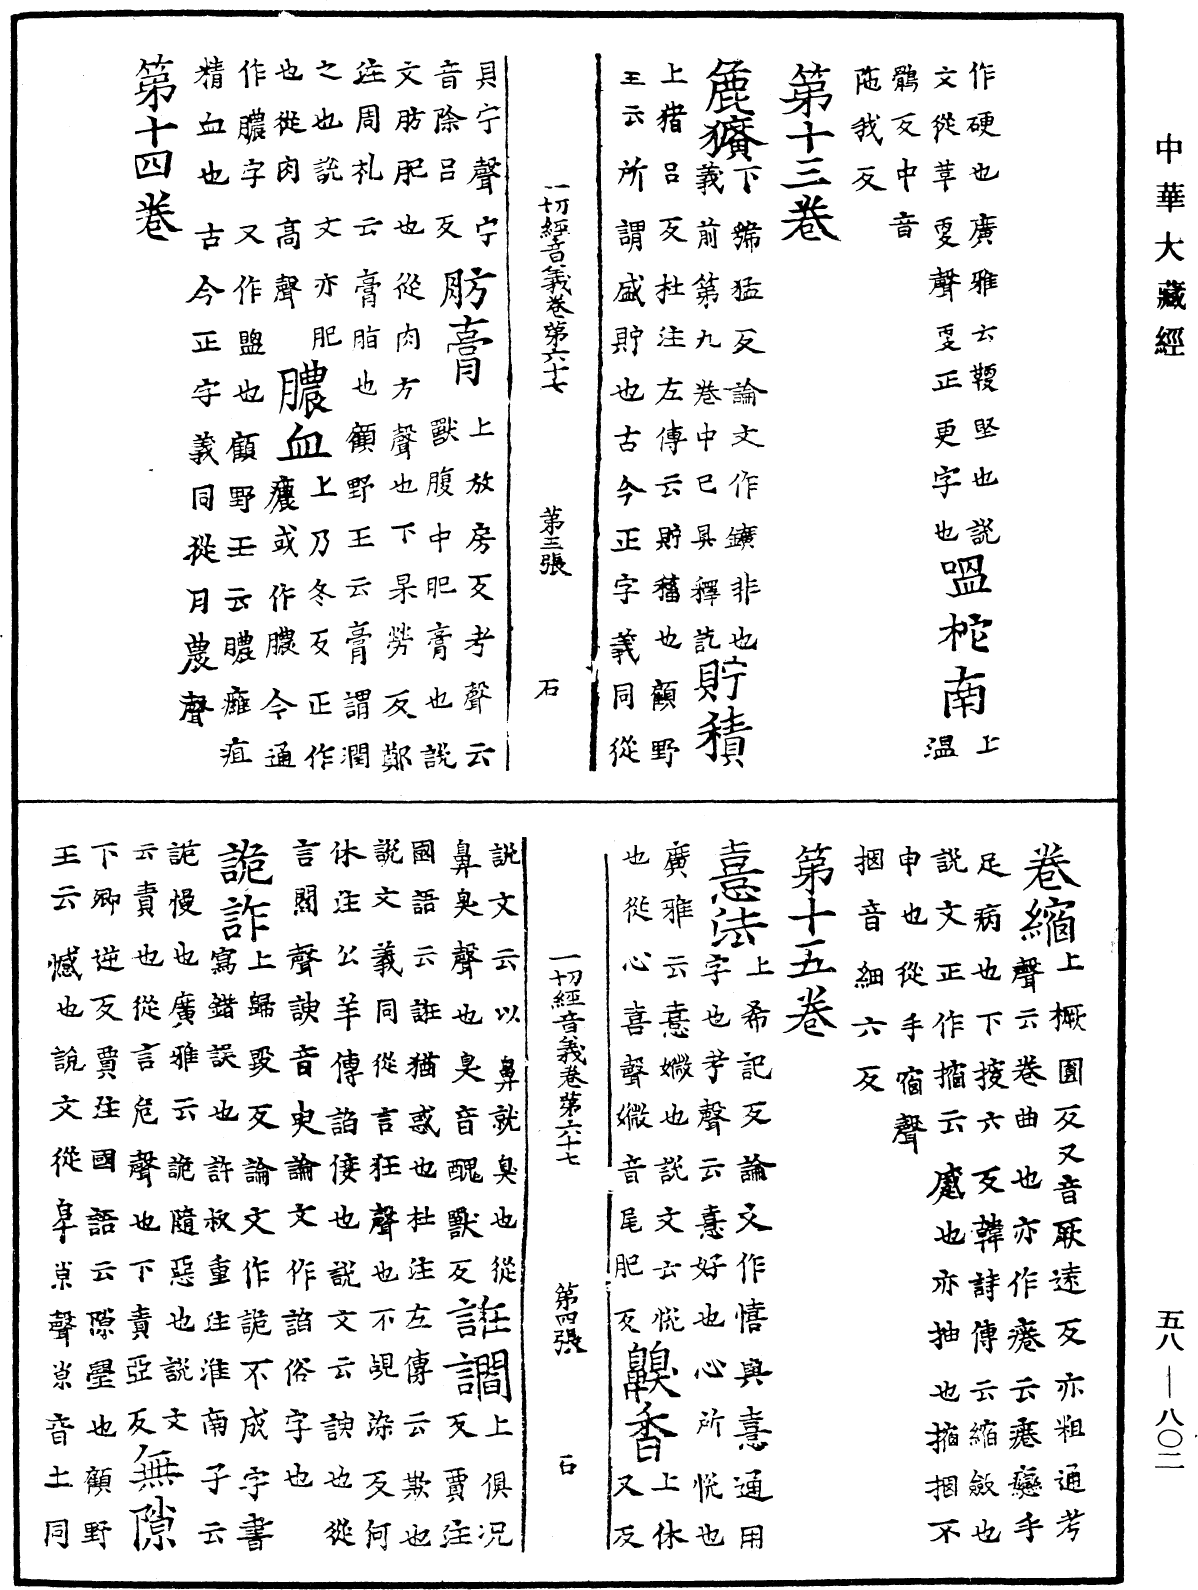 中華大藏經
作硬也廣雅云鞕堅也說
文從革㪅聲㪅正更字也
鶻反中音
陁我反
嗢柁南上溫
第十三卷
麁獷
下虢猛反論文作鑛非也
義前第九卷中已具釋訖
貯積
上猪呂反杜注左傳云貯穡也顧野
王云所謂盛貯也古今正字義同從
一切經音義卷第六十七 第三張 石
貝宁聲宁
音除呂反
肪膏
上放房反考聲云
獸腹中肥膏也說
文肪肥也從肉方聲也下杲勞反鄭
注周礼云膏脂也顧野王云膏謂潤
之也說文亦肥
也從肉高聲
膿血
上乃冬反正作
癑或作膿今通
作膿字又作盥也顧野王云膿癰疽
精血也古今正字義同從月農聲
第十四卷
卷縮
上橛圓反又音厥遠反亦粗通考
聲云卷曲也亦作癢云癢癴手
足病也下㨷六反韓詩傳云縮斂也
說文正作摍云蹙也亦抽也摍捆不
申也從手宿聲
捆音細六反
第十五卷
憙法
上希記反論文作憘與憙通用
字也考聲云憙好也心所悅也
廣雅云憙嬍也說文云悅
也從心喜聲嬍音尾肥反
齅香
上休
又反
一切經音義卷第六十七 第四張 石
說文云以鼻就臭也從
鼻臭聲也臭音醜獸反
誑譋
上俱况
反賈注
國語云誑猶惑也杜注左傳云欺也
說文義同從言狂聲也不覘染反何
休注公羊傳諂倿也說文云諛也從
言閻聲諛音臾論文作諂俗字也
詭詐
上歸毀反論文作詭不成字書
寫錯誤也許叔重注淮南子云
詭慢也廣雅云詭隨惡也說文
云責也從言危聲也下責亞反
無隙
下卿逆反賈注國語云隙舋也顧野
王云憾也說文從𨸏㡭聲㡭音土同
五八—八〇二